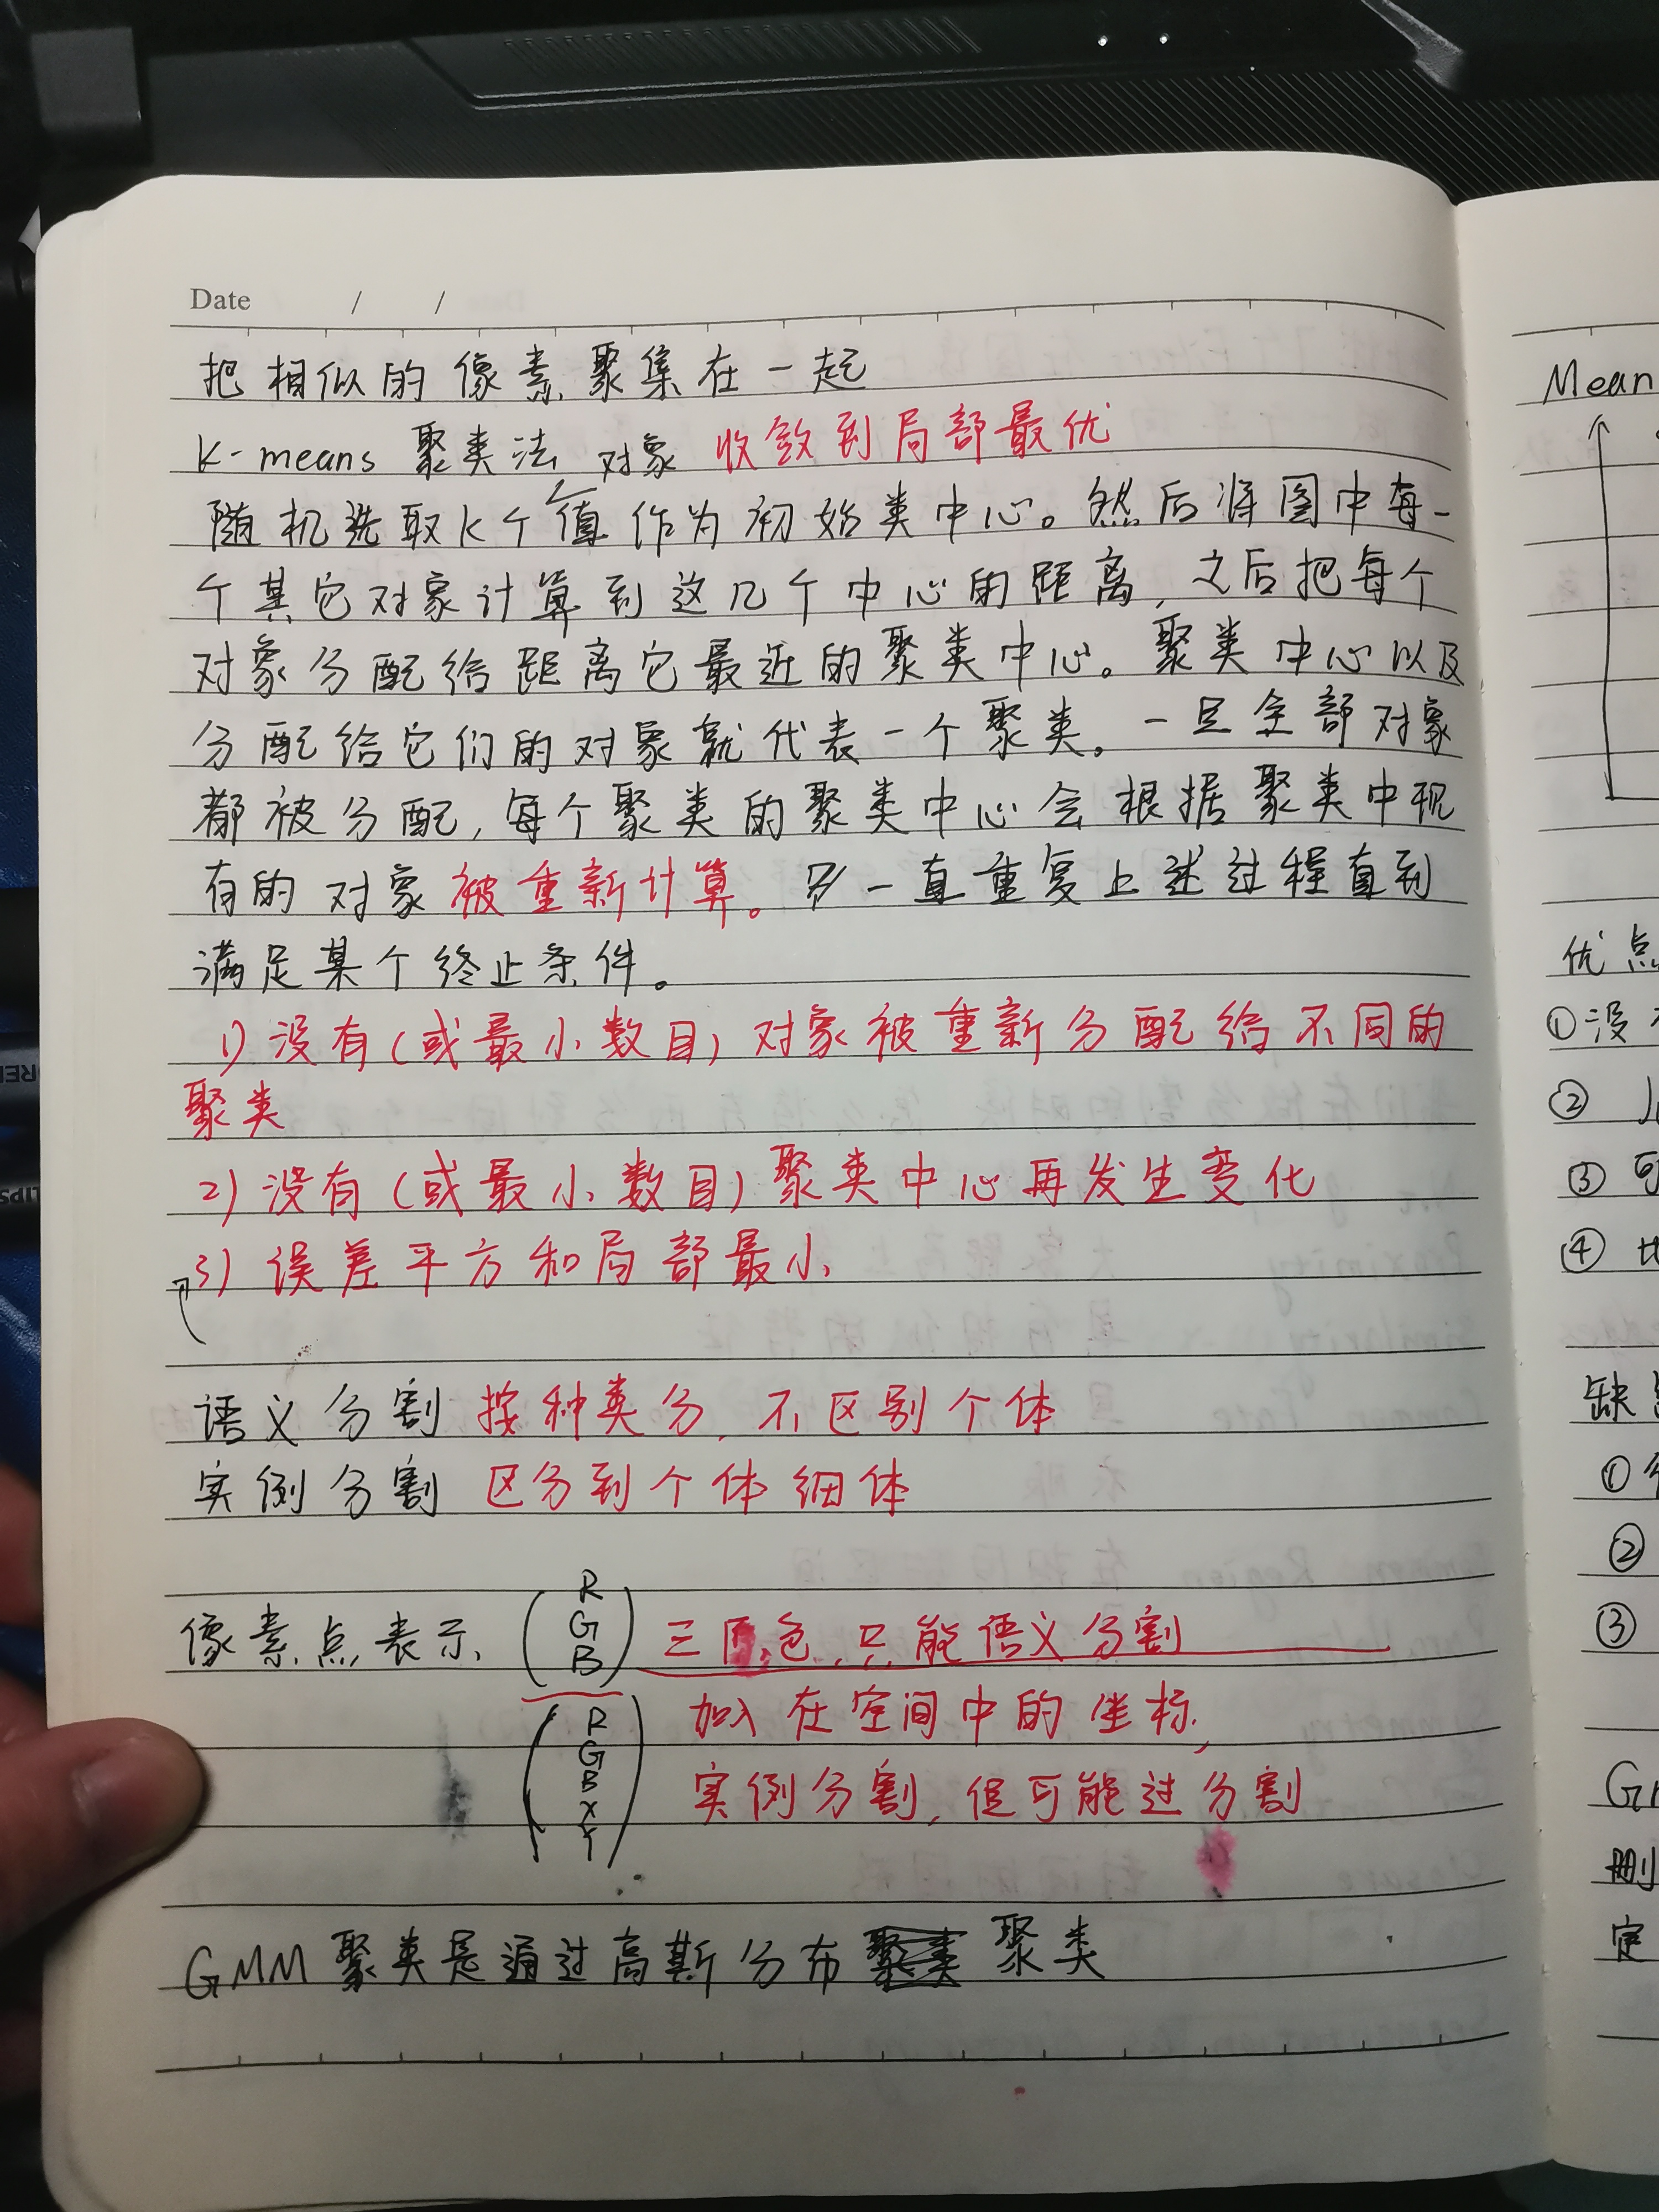 Date / /
把相似的像素聚集在一起
K-means 聚类法 对象 收敛到局部最优
随机选取K个值作为初始类中心。然后将图中每一
个其它对象计算到这几个中心的距离,之后把每个
对象分配给距离它最近的聚类中心。聚类中心以及
分配给它们的对象就代表一个聚类。一旦全部对象
都被分配,每个聚类的聚类中心会根据聚类中现
有的对象被重新计算。一直重复上述过程直到
满足某个终止条件。
1) 没有(或最小数目)对象被重新分配给不同的
聚类
2) 没有(或最小数目)聚类中心再发生变化
3) 误差平方和局部最小
语义分割 按种类分,不区别个体
实例分割 区分到个体细体
像素点表示 (R G B) 三原色,只能语义分割
(R G B X Y) 加入在空间中的坐标,
实例分割,但可能过分割
GMM 聚类是通过高斯分布 聚类
Mean
优点
①没
②
③可
④
缺
①
②
③
G
删
定